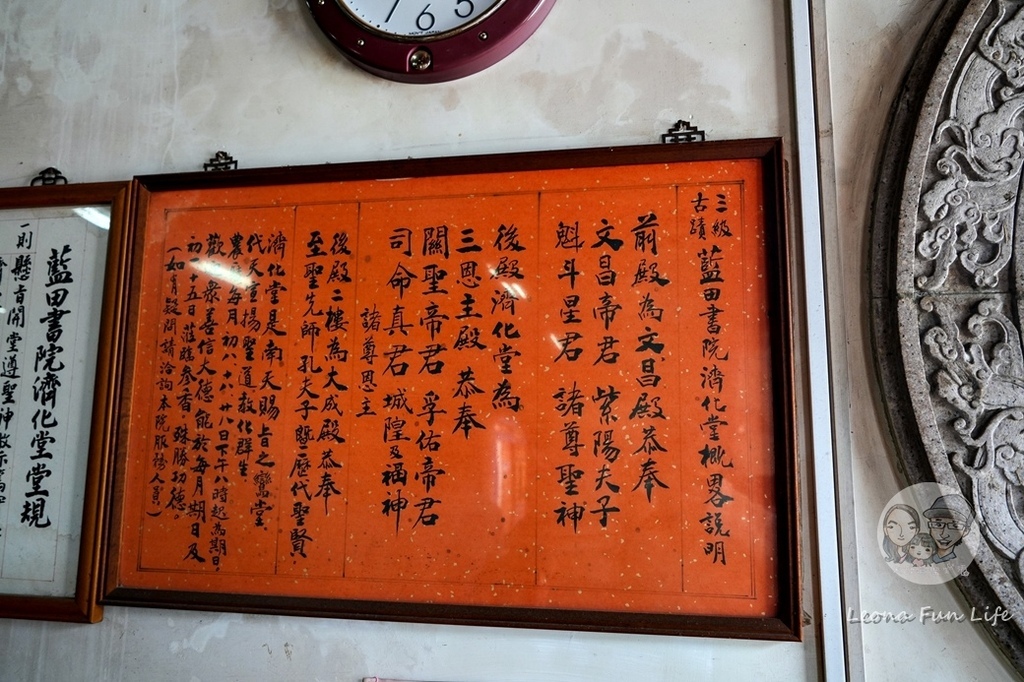 7 6 5
三級古蹟 藍田書院濟化堂概畧說明
前殿為文昌殿恭奉
文昌帝君 紫陽夫子
魁斗星君 諸尊聖神
後殿濟化堂為
三恩主殿 恭奉
關聖帝君 孚佑帝君
司命真君 城隍及福神
諸尊恩主
後殿二樓為大成殿恭奉
至聖先師孔夫子暨歷代聖賢.
濟化堂是南天賜旨之鸞堂.
代天宣揚聖道教化群生
農曆每月初八、十八、廿八日下午八時起為期日.
歡迎眾善信大德能於每月期日及
初一、十五日蒞臨參香.殊勝功德。
(如有疑問請洽詢本院服務人員)
藍田書院濟化堂堂規
一則 懸旨開堂遵聖神教示
Leona Fun Life